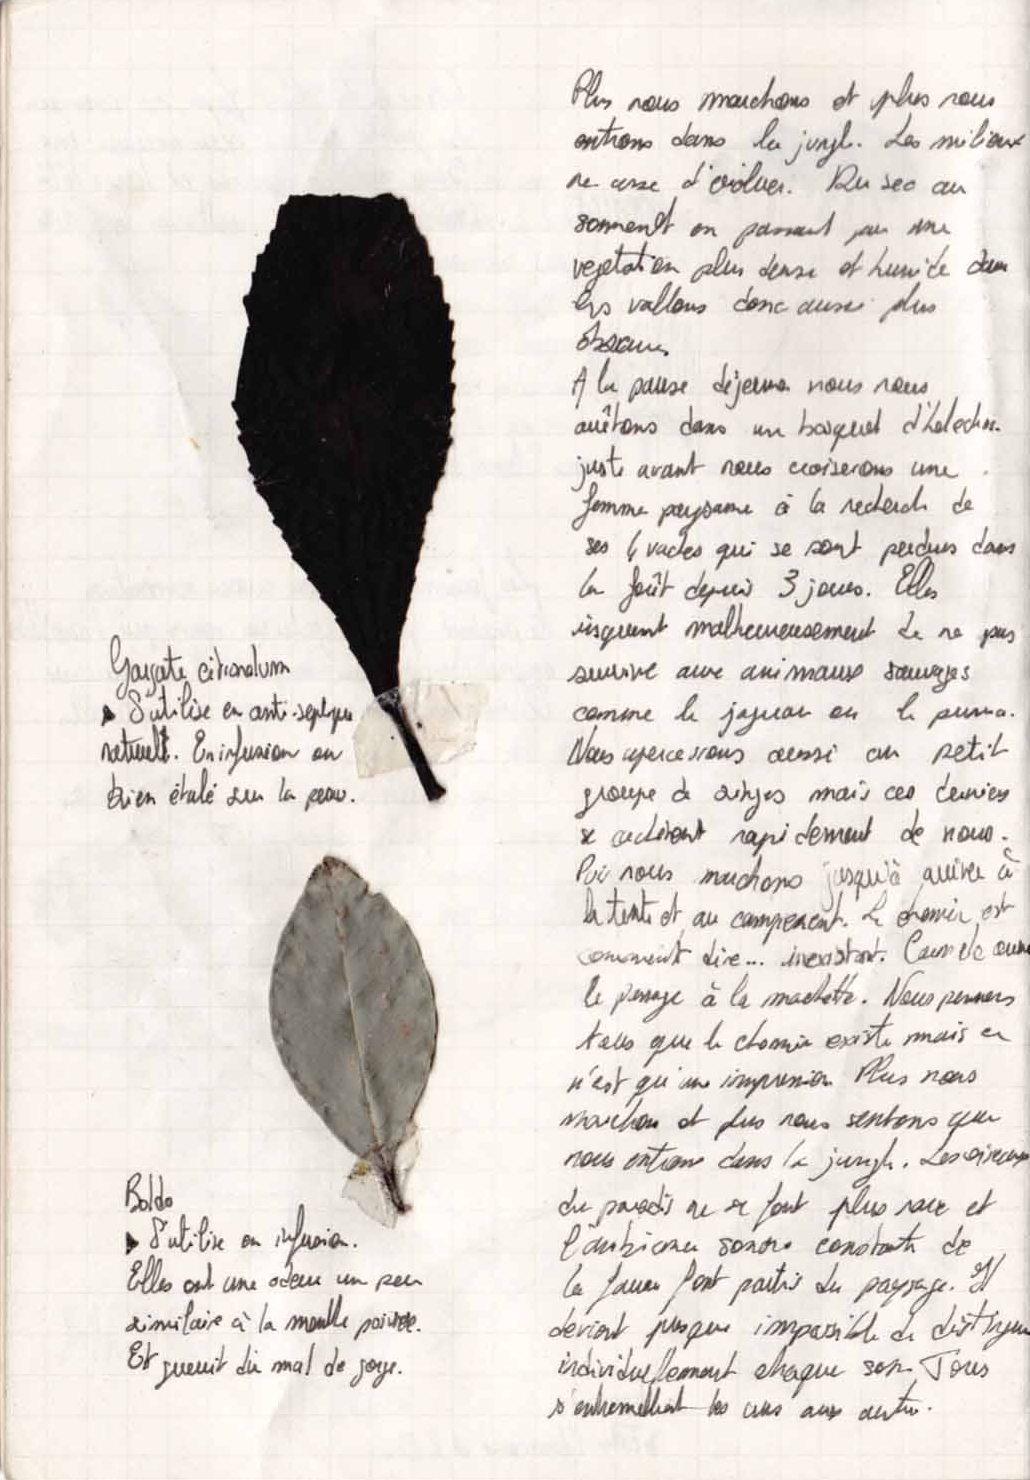 Plus nous marchons et plus nous
entrons dans la jungle. Les milieux
ne cesse d'évoluer. Du sec au
sommet en passant par une
vegetation plus dense et humide dans
les vallons donc aussi plus
obscures
A la pause déjeuner nous nous
arrêtons dans un bosquet d'helechos.
juste avant nous croiserons une
femme paysanne à la recherche de
ses 4 vaches qui se sont perdues dans
la forêt depuis 3 jours. Elles
risquent malheureusement de ne pas
survivre aux animaux sauvages
comme le jaguar ou le puma.
Nous apercevons aussi un petit
groupe de singes mais ces derniers
se rapidement de nous.
Puis nous marchons jusqu'à arriver à
la tente et au campement. Le chemin est
comment dire... inexistant. ouvre
le passage à la machette. Nous pensons
tous que le chemin existe mais ce
n'est qu'une impression Plus nous
marchons et plus nous sentons que
nous entrons dans la jungle. Les oiseaux
du paradis ne se font plus rare et
l'ambiance sonore constante de
la faune font partis du paysage. Il
devient presque impossible de distinguer
individuellement chaque son. Tous
s'entremellent les uns aux autres.
citronolum
▶ S'utilise en anti-septique
naturelle. En infusion ou
bien étalé sur la peau.
Boldo
▶ S'utilise en infusion.
Elles ont une odeur un peu
similaire à la menthe poivrée.
Et guerit du mal de gorge.